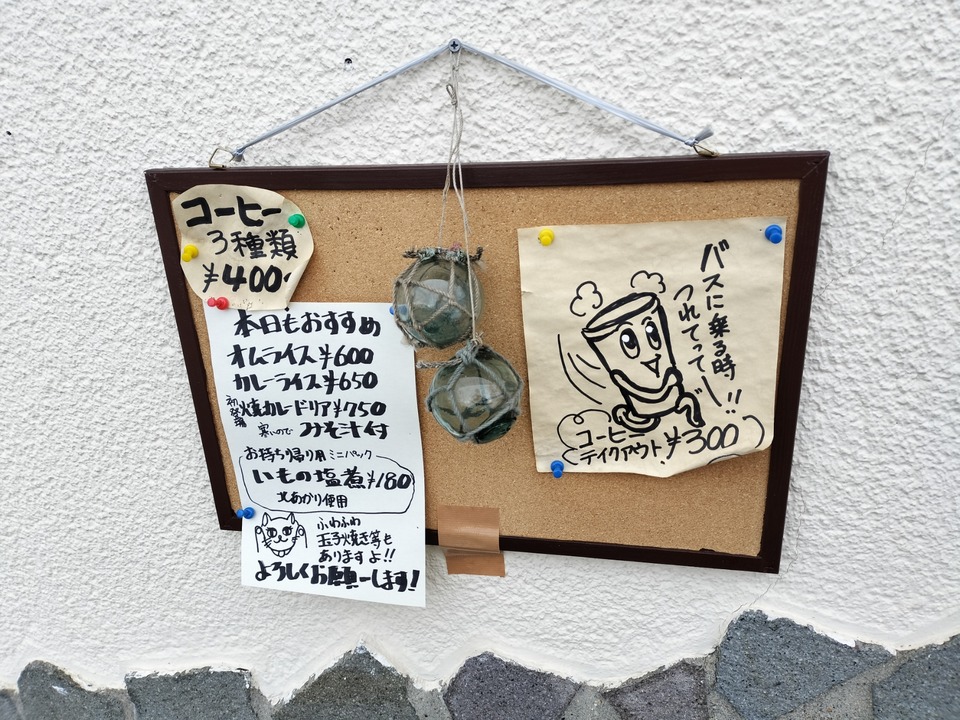 コーヒー
3種類
¥400.
本日もおすすめ
オムライス¥600
カレーライス¥650
初登場 焼カレードリア¥750
寒いので みそ汁付
お持ち帰り用 ミニパック
いもの塩煮¥180
北あかり使用
ふわふわ
玉子焼き等も
ありますよ!!
よろしくお願ーします!
バスに乗る時
つれてってー!!
コーヒー
テイクアウト¥300